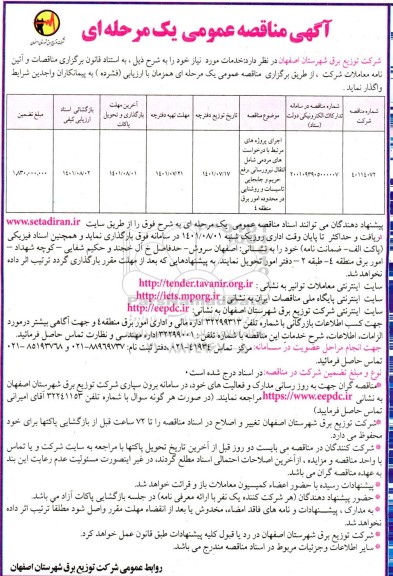 آگهی مناقصه عمومی یک مرحله ای
شرکت توزیع برق شهرستان اصفهان در نظر دارد:خدمات مورد نیاز خود را به شرح ذیل ، به استناد قانون برگزاری مناقصات و آئین
نامه معاملات شرکت ، از طریق برگزاری مناقصه عمومی یک مرحله ای همزمان با ارزیابی (فشرده ) به پیمانکاران واجدین شرایط
واگذار نماید .
شماره مناقصه شرکت
شماره مناقصه در سامانه تدارکات الکترونیکی دولت (ستاد)
موضوع مناقصه
تاریخ توزیع دفترچه
مهلت تهیه دفترچه
آخرین مهلت بارگذاری و تحویل پاکات
بازگشائی اسناد ارزیابی کیفی
مبلغ تضمین
۴۰۱۱۴۰۷۲
۲۰۰۱۰۹۳۹۰۵۰۰۰۰۰۷
اجرای پروژه های مرتبط با درخواست های مردمی شامل انتقال نیرورسانی رفع حریم و جابجایی تاسیسات و روشنایی در محدوده امور برق منطقه ٤
۱۴۰۱/۰۷/۱۷
۱۴۰۱/۰۷/۲۱
۱۴۰۱/۰۸/۰۱
۱۴۰۱/۰۸/۰۲
۱,۸۳۰,۰۰۰,۰۰۰
پیشنهاد دهندگان می توانند اسناد مناقصه عمومی یک مرحله ای به شرح فوق را از طریق سایت www.setadiran.ir
دریافت و حداکثر تا پایان وقت اداری روزیک شنبه ۱۴۰۱/۰۸/۰۱ در سامانه فوق بارگذاری نماید و همچنین اسناد فیزیکی
(پاکت الف- ضمانت نامه) خود را به نشانی: اصفهان سروش- حدفاصل خ آل خجند و حکیم شفایی – کوچه شهداد –
امور برق منطقه ۴- طبقه ۲ – دفتر امور تحویل نمایند. به پیشنهادهایی که بعد از مهلت مقرر بارگذاری گردد ترتیب اثر داده
نخواهد شد.
سایت اینترنتی معاملات توانیر به نشانی : http://tender.tavanir.org.ir
سایت اینترنتی پایگاه ملی مناقصات ایران به نشانی : http://iets.mporg.ir
سایت اینترنتی شرکت توزیع برق شهرستان اصفهان به نشانی : http://eepdc.ir
جهت کسب اطلاعات بازرگانی با شماره تلفن ۳۲۲۹۹۳۱۳ اداره مالی و اداری امور برق منطقه۴ و جهت آگاهی بیشتر درمورد
الزامات، اطلاعات، شرح خدمات این مناقصه با شماره تلفن : ۳۲۲۹۹۰۰۱ اداره مهندسی و نظارت تماس حاصل فرمائید.
جهت انجام مراحل عضویت در سامانه: مرکز تماس ۴۱۹۳۴-۰۲۱ دفتر ثبت نام: ۸۸۹۶۹۷۳۷-۰۲۱ ۸۵۱۹۳۷۶۸-۰۲۱
تماس حاصل فرمائید.
نوع و مبلغ تضمین شرکت در مناقصه: در اسناد درج شده است
مناقصه گران جهت به روز رسانی مدارک و فعالیت های خود، در سامانه برون سپاری شرکت توزیع برق شهرستان اصفهان
به نشانی https://www.eepdc.ir مراجعه نمایند. (در صورت هر گونه سوال با شماره تلفن ۳۲۲۴۱۱۵۳ آقای امیرانی
تماس حاصل فرمایید)
شرکت توزیع برق شهرستان اصفهان تغییر و اصلاح در اسناد مناقصه را تا ۷۲ ساعت قبل از بازگشایی پاکتها برای خود
محفوظ می دارد.
شرکت کنندگان در مناقصه می بایست دو روز قبل از آخرین تاریخ تحویل پاکتها با مراجعه به سایت شرکت و یا تماس
با واحد مناقصه و مزایده ، ازآخرین اصلاحات احتمالی اسناد مطلع گردند، در غیر اینصورت مسئولیت عدم رعایت این بند
به عهده مناقصه گران می باشد.
پیشنهادات رسیده با حضور اعضاء کمیسیون معاملات باز و قرائت خواهد شد.
حضور پیشنهاد دهندگان (هر شرکت کننده یک نفر با ارائه معرفی نامه) در جلسه بازگشایی پاکات آزاد می باشد.
به مدارک ، پیشنهادات و نامه های فاقد امضاء، مخدوش یا بعد از انقضاء مهلت مقرر واصل شود مطلقا ترتیب اثر داده
نخواهد شد.
شرکت توزیع برق شهرستان اصفهان در رد یا قبول کلیه پیشنهادات طبق قانون عمل خواهد کرد.
سایر اطلاعات وجزئیات مربوط در اسناد مناقصه مندرج می باشد.
روابط عمومی شرکت توزیع برق شهرستان اصفهان